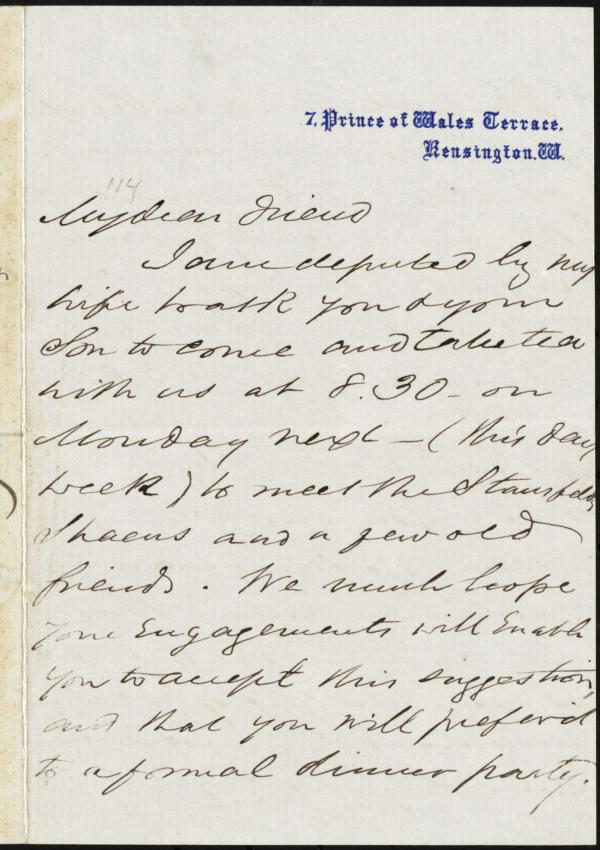 7, Prince of Wales Terrace.
Kensington. W.
114
My dear Friend
I am deputed by my
wife to ask you & your
Son to come and take tea
with us at 8.30 - on
Monday next - (this day
week) to meet the Stansfelds
Shaens and a few old
friends. We much hope
your Engagements will Enable
you to accept this suggestion,
and that you will prefer it
to a formal dinner party.